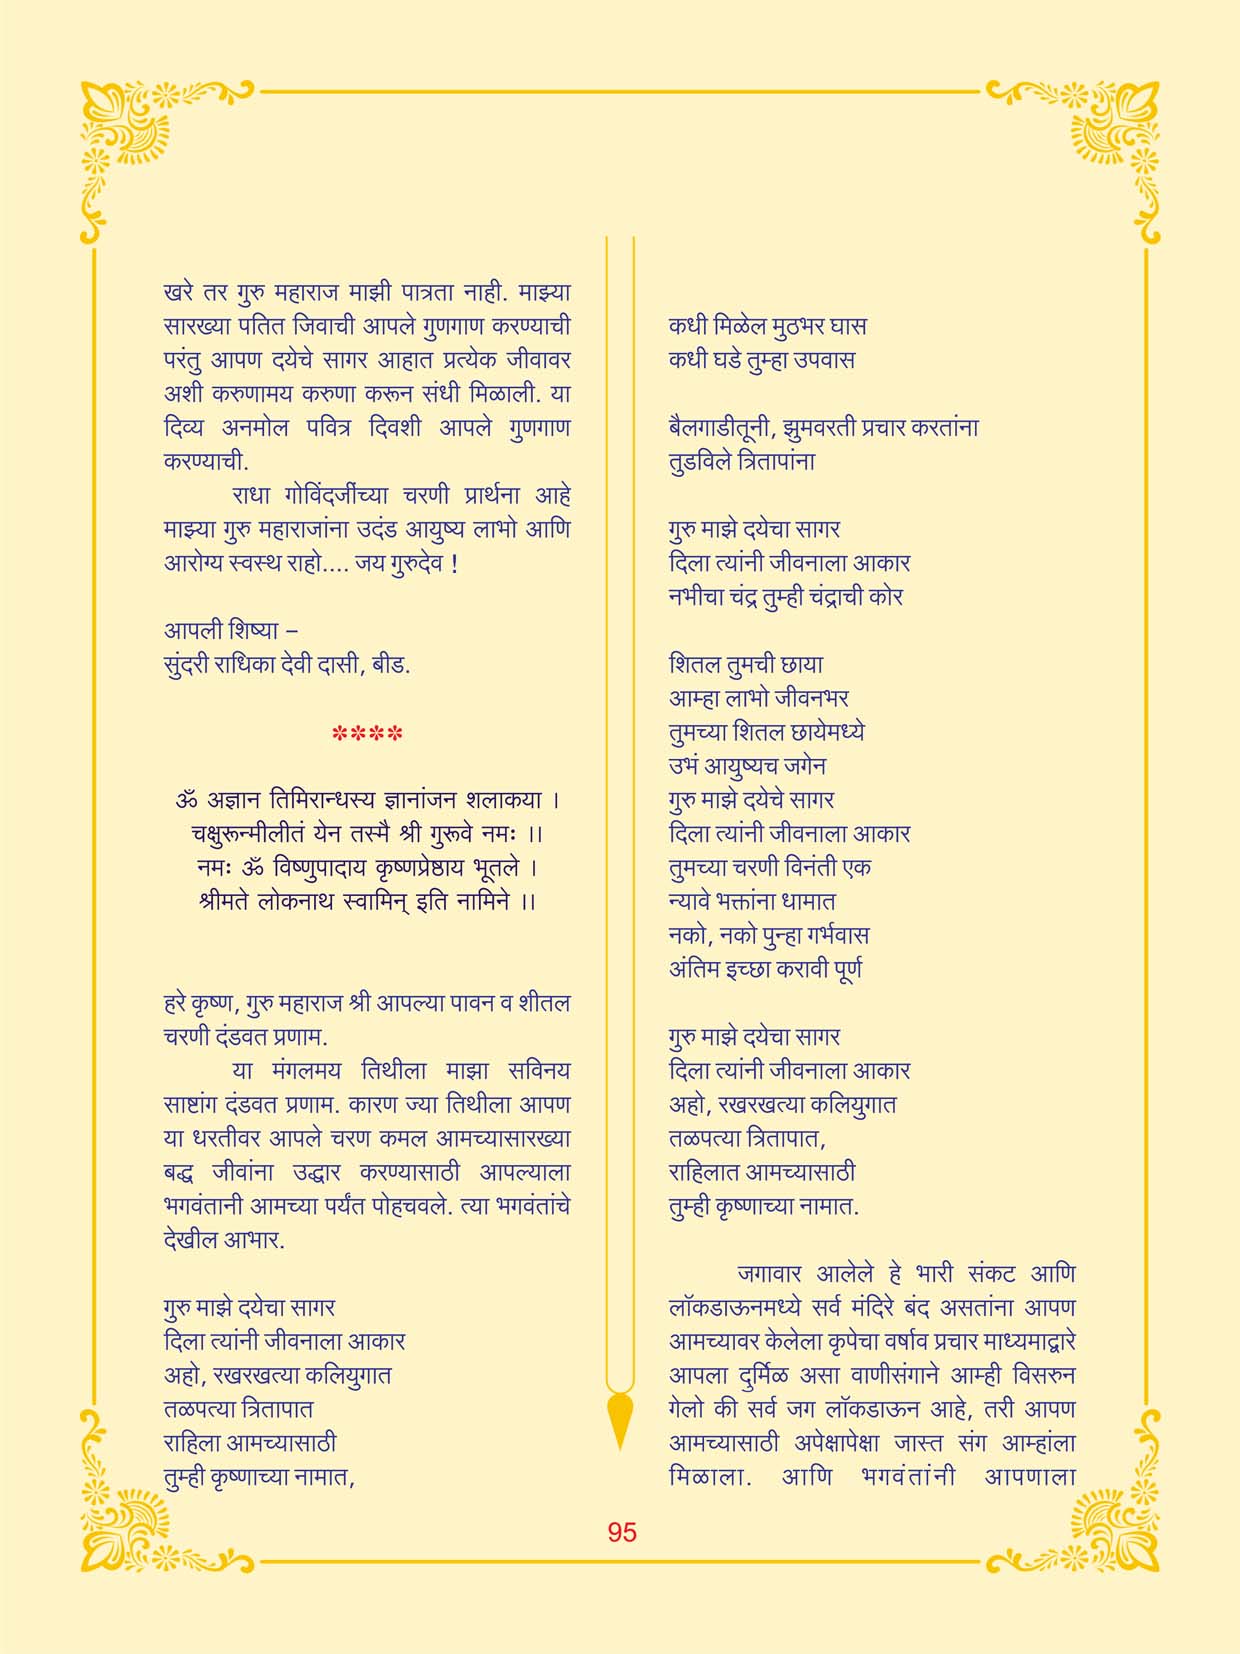 खरे तर गुरु महाराज माझी पात्रता नाही. माझ्या
सारख्या पतित जिवाची आपले गुणगाण करण्याची
परंतु आपण दयेचे सागर आहात प्रत्येक जीवावर
अशी करुणामय करुणा करून संधी मिळाली. या
दिव्य अनमोल पवित्र दिवशी आपले गुणगाण
करण्याची.
राधा गोविंदजींच्या चरणी प्रार्थना आहे
माझ्या गुरु महाराजांना उदंड आयुष्य लाभो आणि
आरोग्य स्वस्थ राहो.... जय गुरुदेव !
आपली शिष्या –
सुंदरी राधिका देवी दासी, बीड.
****
ॐ अज्ञान तिमिरान्धस्य ज्ञानांजन शलाकया ।
चक्षुरून्मीलीतं येन तस्मै श्री गुरूवे नमः ।।
नमः ॐ विष्णुपादाय कृष्णप्रेष्ठाय भूतले ।
श्रीमते लोकनाथ स्वामिन् इति नामिने ।।
हरे कृष्ण, गुरु महाराज श्री आपल्या पावन व शीतल
चरणी दंडवत प्रणाम.
या मंगलमय तिथीला माझा सविनय
साष्टांग दंडवत प्रणाम. कारण ज्या तिथीला आपण
या धरतीवर आपले चरण कमल आमच्यासारख्या
बद्ध जीवांना उद्धार करण्यासाठी आपल्याला
भगवंतानी आमच्या पर्यंत पोहचवले. त्या भगवंतांचे
देखील आभार.
गुरु माझे दयेचा सागर
दिला त्यांनी जीवनाला आकार
अहो, रखरखत्या कलियुगात
तळपत्या त्रितापात
राहिला आमच्यासाठी
तुम्ही कृष्णाच्या नामात,
कधी मिळेल मुठभर घास
कधी घडे तुम्हा उपवास
बैलगाडीतूनी, झुमवरती प्रचार करतांना
तुडविले त्रितापांना
गुरु माझे दयेचा सागर
दिला त्यांनी जीवनाला आकार
नभीचा चंद्र तुम्ही चंद्राची कोर
शितल तुमची छाया
आम्हा लाभो जीवनभर
तुमच्या शितल छायेमध्ये
उभं आयुष्यच जगेन
गुरु माझे दयेचे सागर
दिला त्यांनी जीवनाला आकार
तुमच्या चरणी विनंती एक
न्यावे भक्तांना धामात
नको, नको पुन्हा गर्भवास
अंतिम इच्छा करावी पूर्ण
गुरु माझे दयेचा सागर
दिला त्यांनी जीवनाला आकार
अहो, रखरखत्या कलियुगात
तळपत्या त्रितापात,
राहिलात आमच्यासाठी
तुम्ही कृष्णाच्या नामात.
जगावार आलेले हे भारी संकट आणि
लॉकडाऊनमध्ये सर्व मंदिरे बंद असतांना आपण
आमच्यावर केलेला कृपेचा वर्षाव प्रचार माध्यमाद्वारे
आपला दुर्मिळ असा वाणीसंगाने आम्ही विसरुन
गेलो की सर्व जग लॉकडाऊन आहे, तरी आपण
आमच्यासाठी अपेक्षापेक्षा जास्त संग आम्हांला
मिळाला. आणि भगवंतांनी आपणाला
95